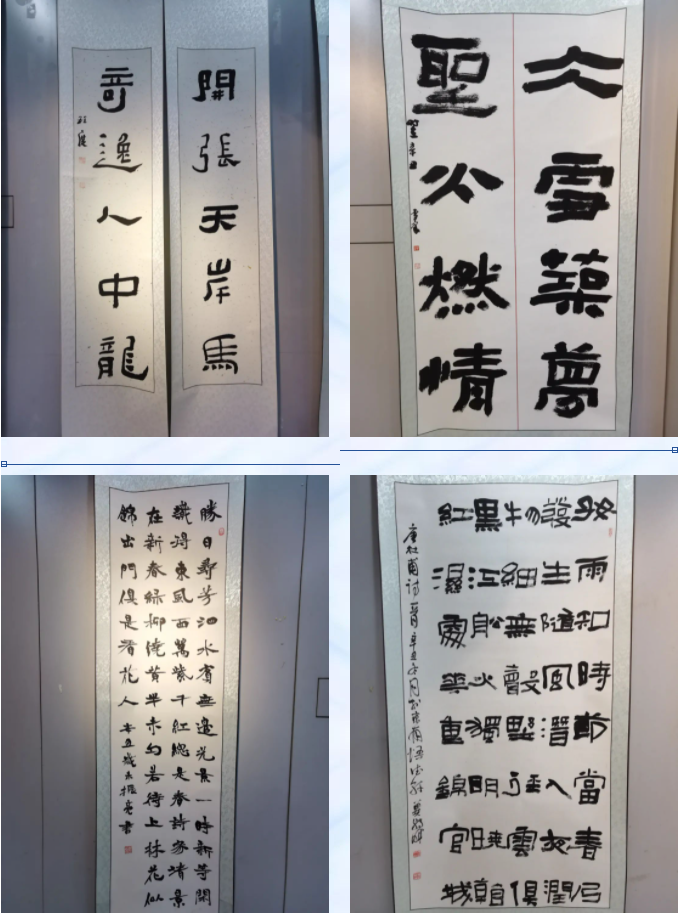 開張天岸馬
奇逸人中龍
仌雪築夢
聖火燃情
勝日尋芳泗水濱無邊光景一時新等閑
識得東風面萬紫千紅總是春詩家清景
在新春綠柳纔黃半未勻若待上林花似
錦出門俱是看花人 辛丑歲末振亮書
好雨知時節當春乃
發生隨風潛入夜潤
物細無聲野徑雲俱
黑江船火獨明曉看
紅濕處華重錦官城
唐杜甫詩一首辛丑